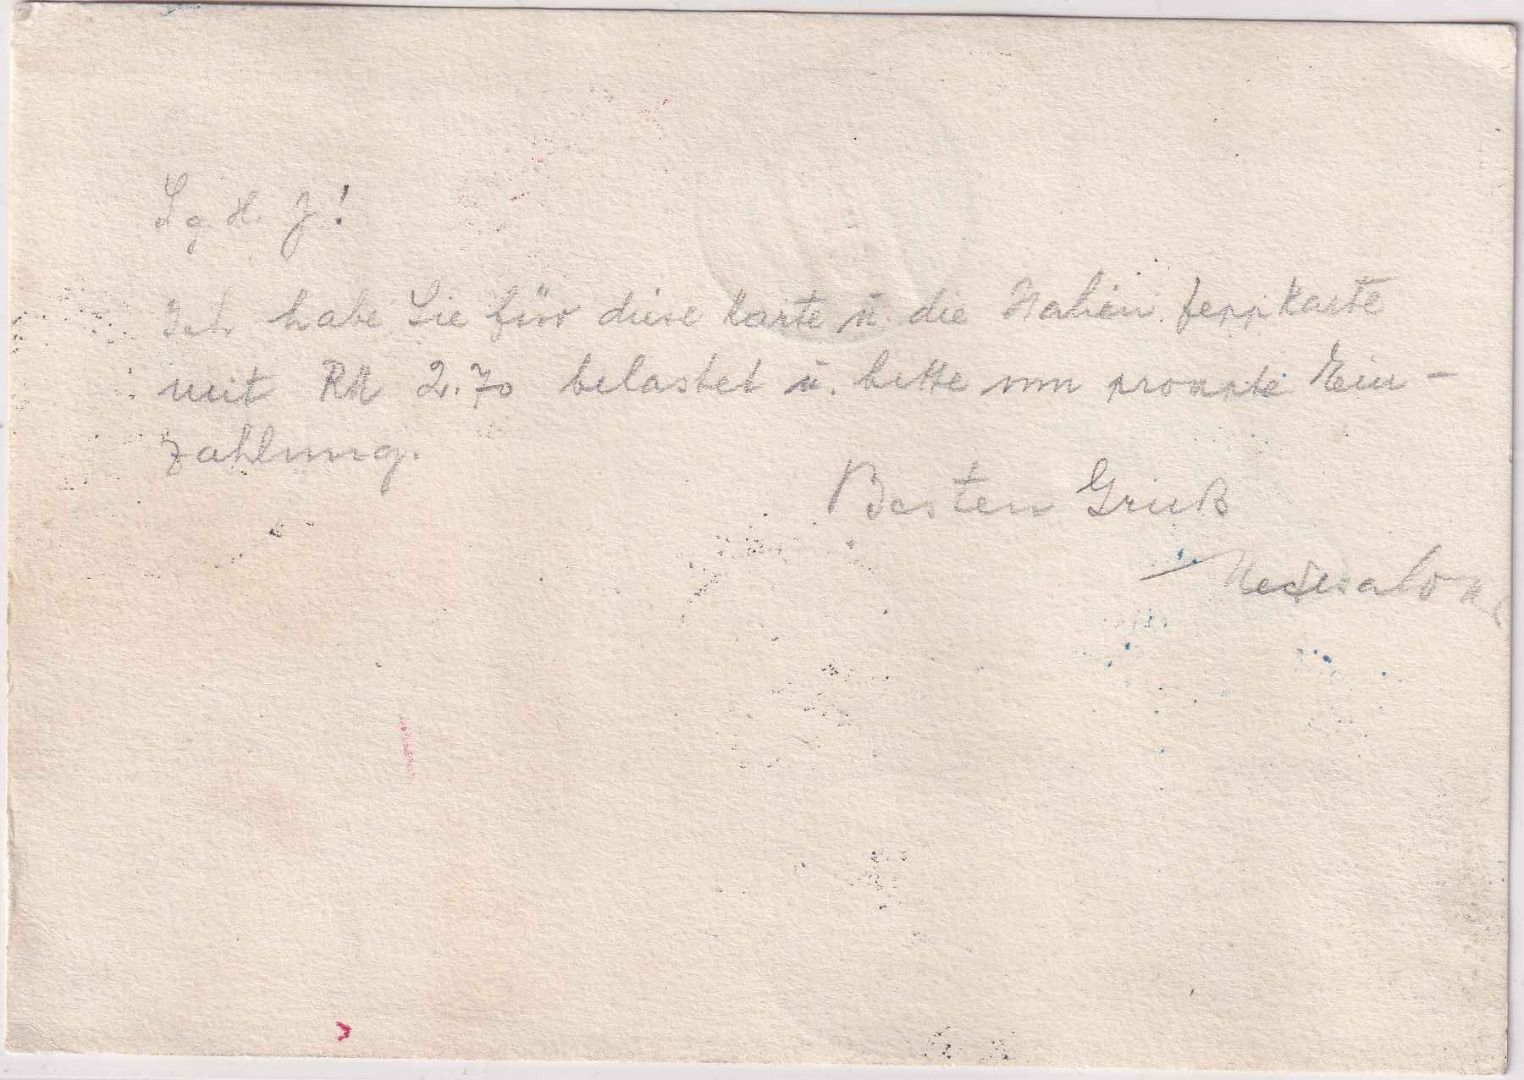 S. g. H. J!
Ich habe Sie für diese Karte u. die Italien. Karte
mit RM 2.70 belastet u. bitte um prompte Ein-
zahlung.
Besten Gruß